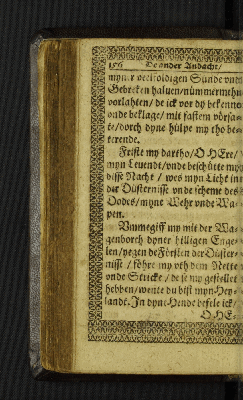 156 De ander Andacht/
myner veelfoldigen Sünde vnde
Gebreken haluen/nümmermehr
vorlahten/ de ick vor dy bekenne
vnde beklage/ mit fastem vörsa-
te/dorch dyne hülpe my tho be-
kerende.
Friste my dartho/O HEre/
myn Leuendt/vnde beschütte my
disse Nacht/ wes myn Licht inn
der Düsternisse vnde scheme des
Dodes/myne Wehr vnde Wa-
pen.
Vmmegiff my mit der Wa-
genborch dyner hilligen Enge-
len/yegen de Försten der Düster-
nisse/ före my vth dem Nette
vnde Stricke/ de se my gestellet
hebben/wente du bist myn Hey-
landt. In dyne Hende befele ick/
O HE-